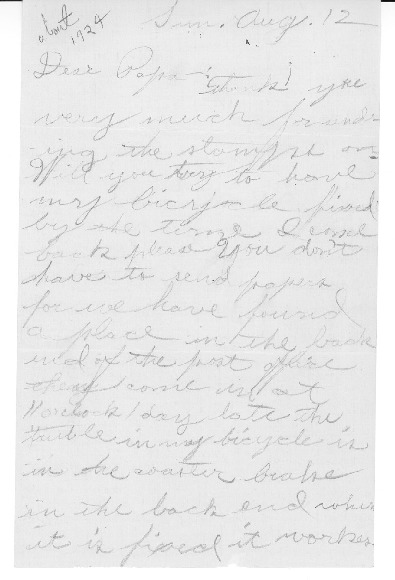 about
1924
Sun. Aug. 12
Dear Papa-:
Thank you
very much for send-
ing the stamps on.
Will you try to have
my bicyc-le fixed
by the time I come
back please You don't
have to send papers
for we have found
a place in the back
end of the post office
they come in at
1 day late the
truble in my bicycle is
in the coaster brake
in the back end when
it is fixed it workes